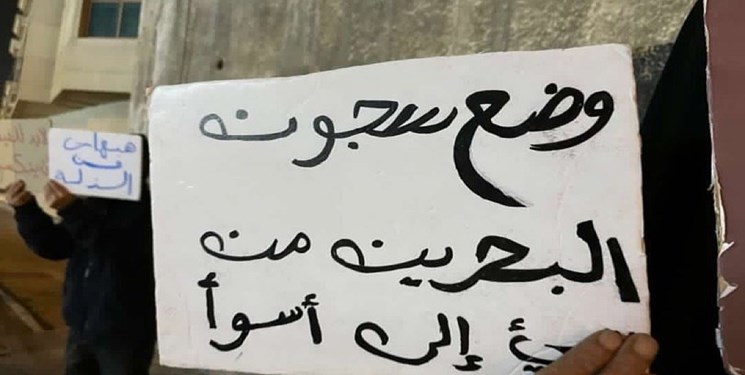 وضع سجون
البحرين من
ئ إلى أسوأ
هيهات
من
الذلة